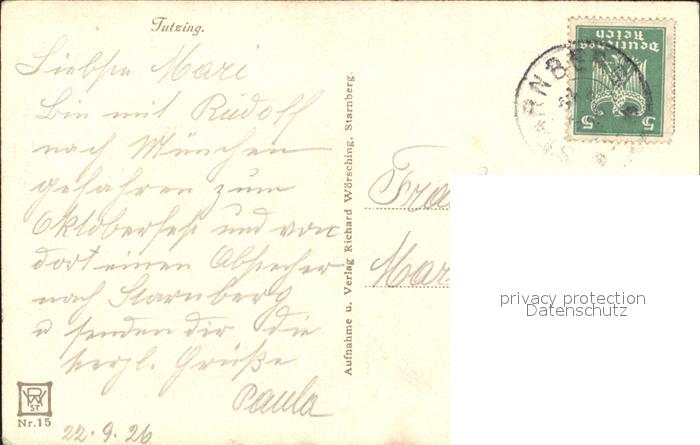 Tutzing.
Liebste Mari
Bin mit Rudolf
nach München
gefahren zum
Oktoberfest und von
dort einen Abstecher
nach Starnberg
u senden dir die
herzl. Grüße
Paula
22.9.26
Nr. 15
RW
ST.
Aufnahme u. Verlag Richard Wörsching, Starnberg.
Deutsches
Reich
5 5
RNBERG
Fra
Mar
privacy protection
Datenschutz